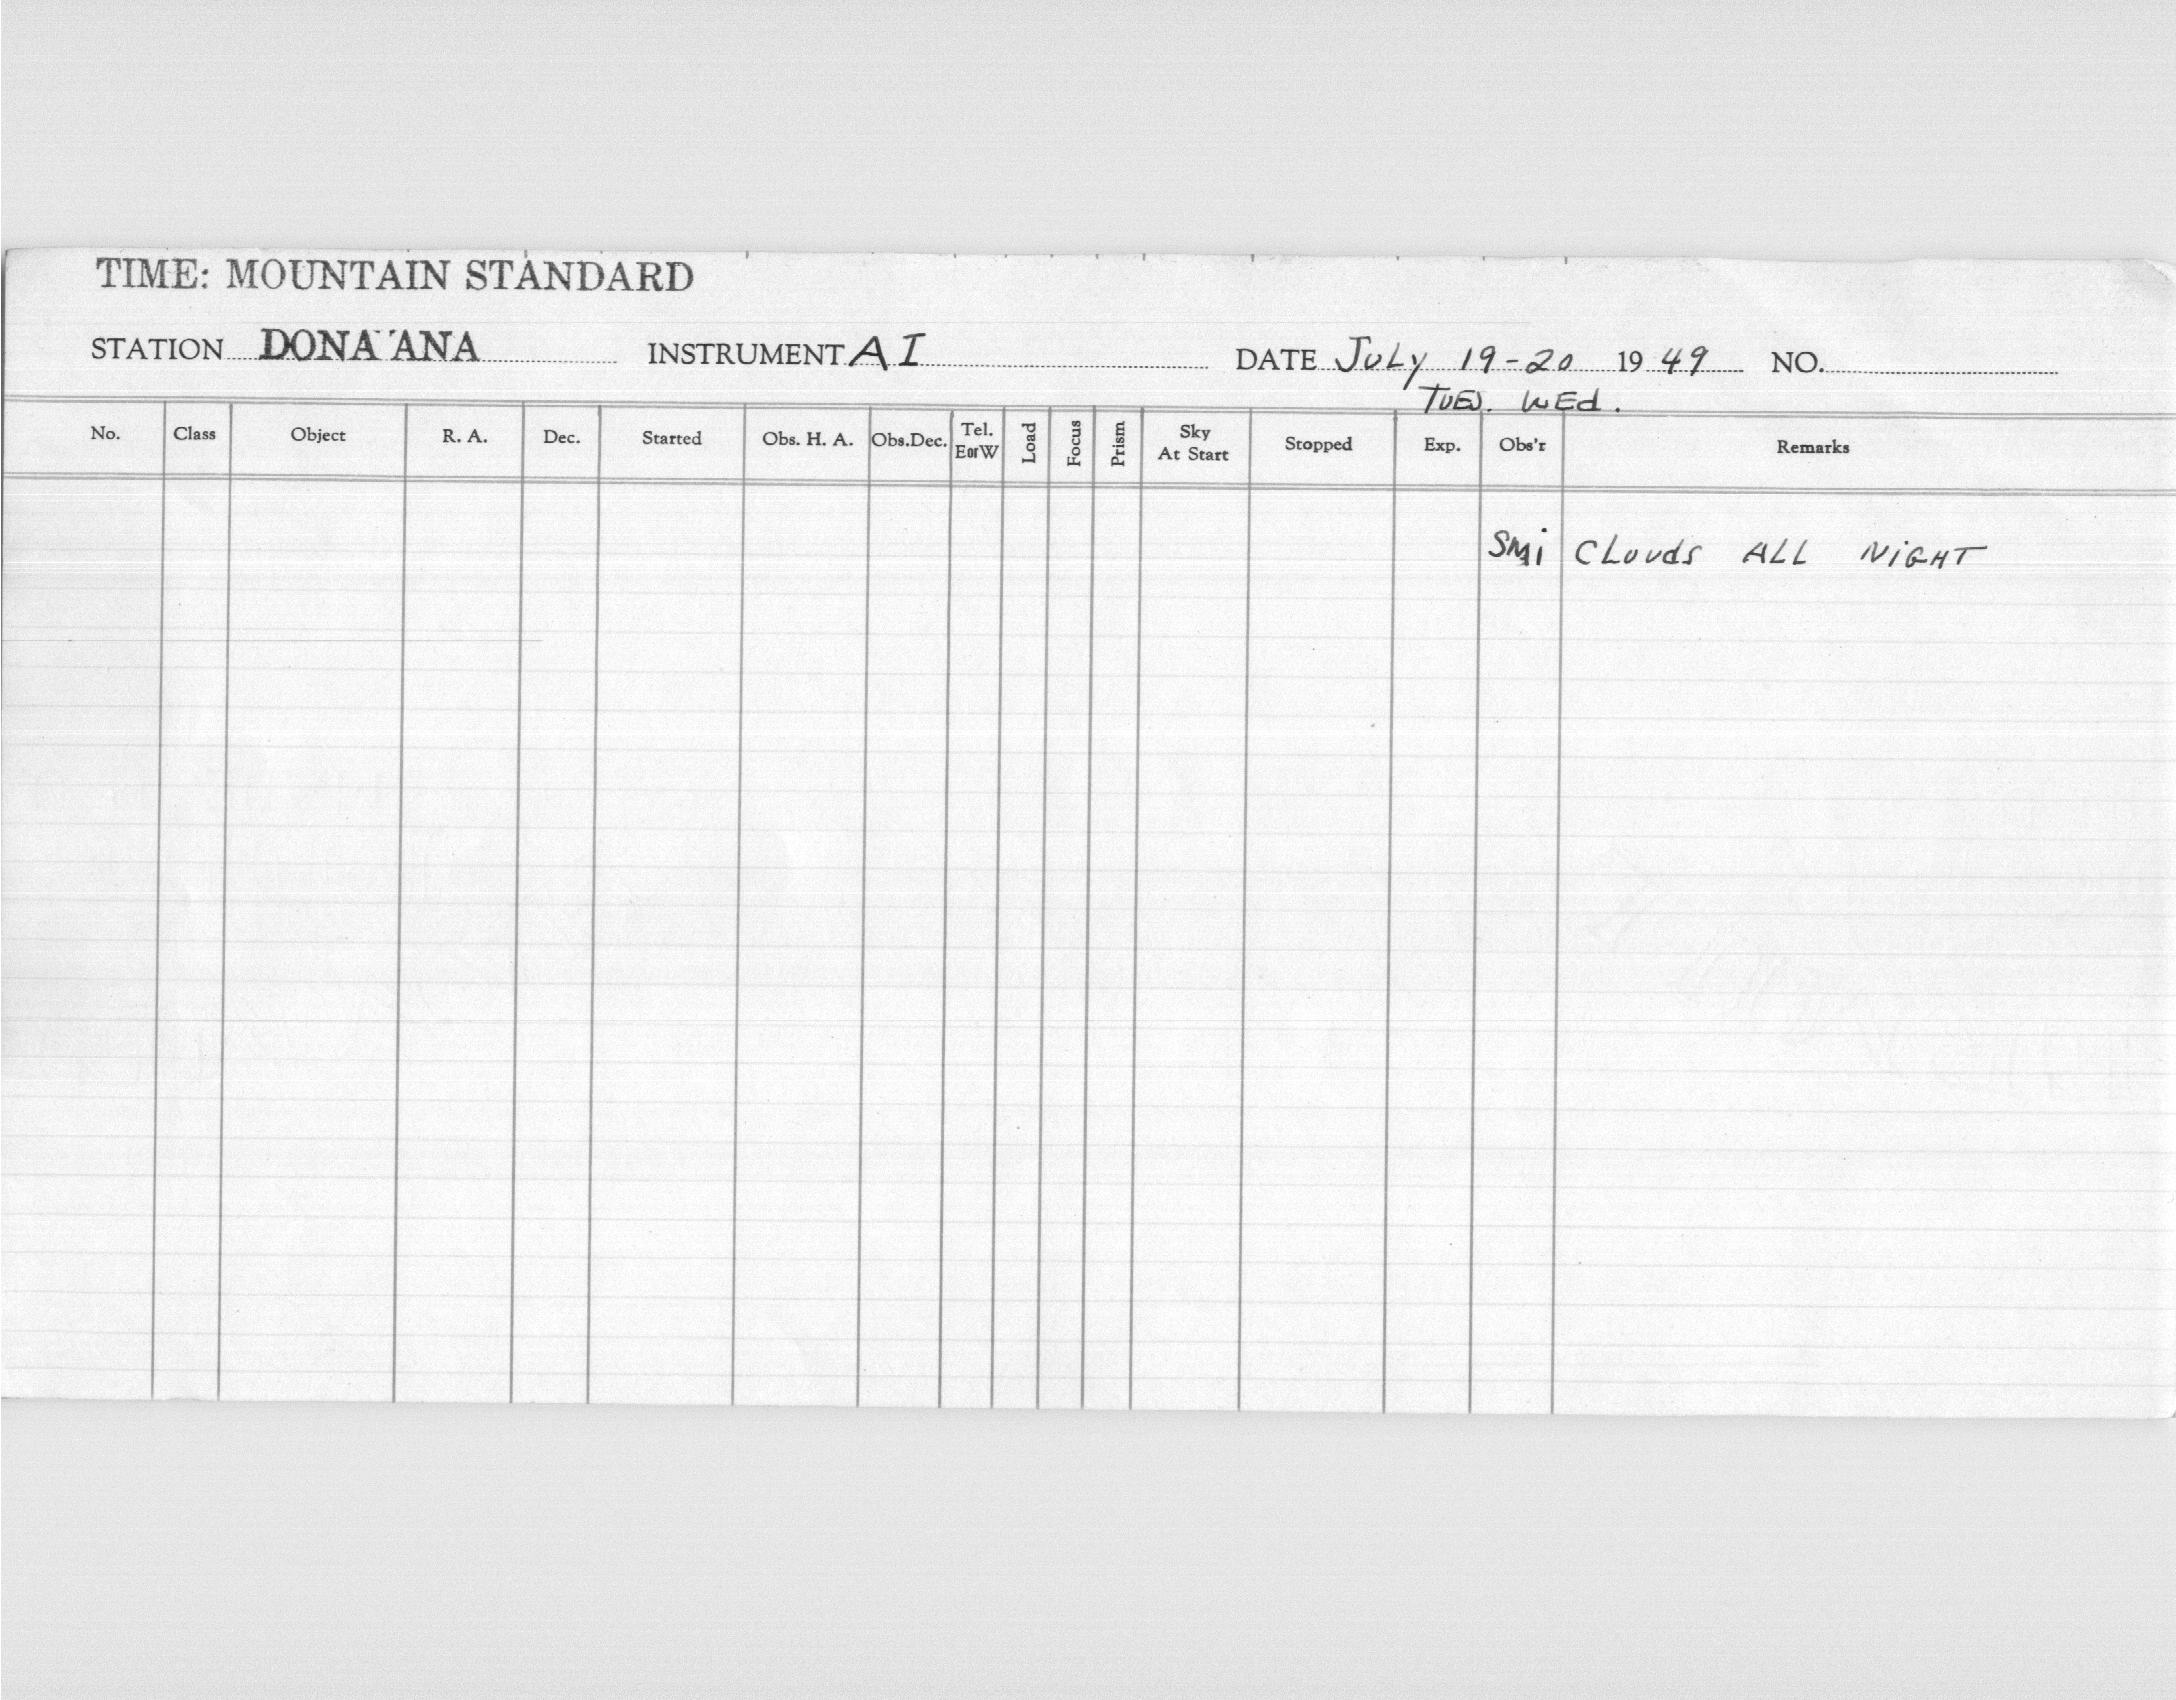 TIME: MOUNTAIN STANDARD
STATION DONA ANA INSTRUMENT AI DATE JULY 19-20 1949 NO.
TUES. WEd.
No. Class Object R. A. Dec. Started Obs. H. A. Obs.Dec. Tel. EorW Load Focus Prism Sky At Start Stopped Exp. Obs'r Remarks
SMi CLouds ALL NiGHT